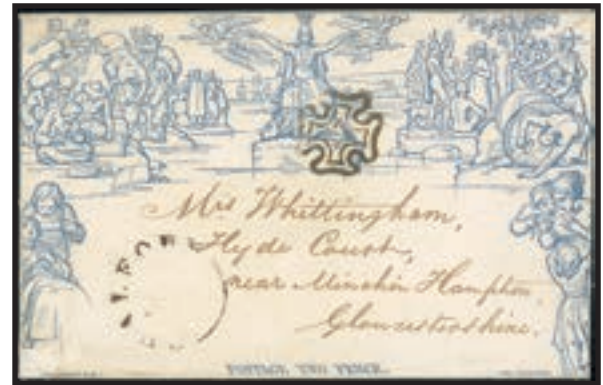 Mrs Whittingham,
Hyde Court,
near Minchin Hampton,
Gloucestershire.
POSTAGE TWO PENCE.